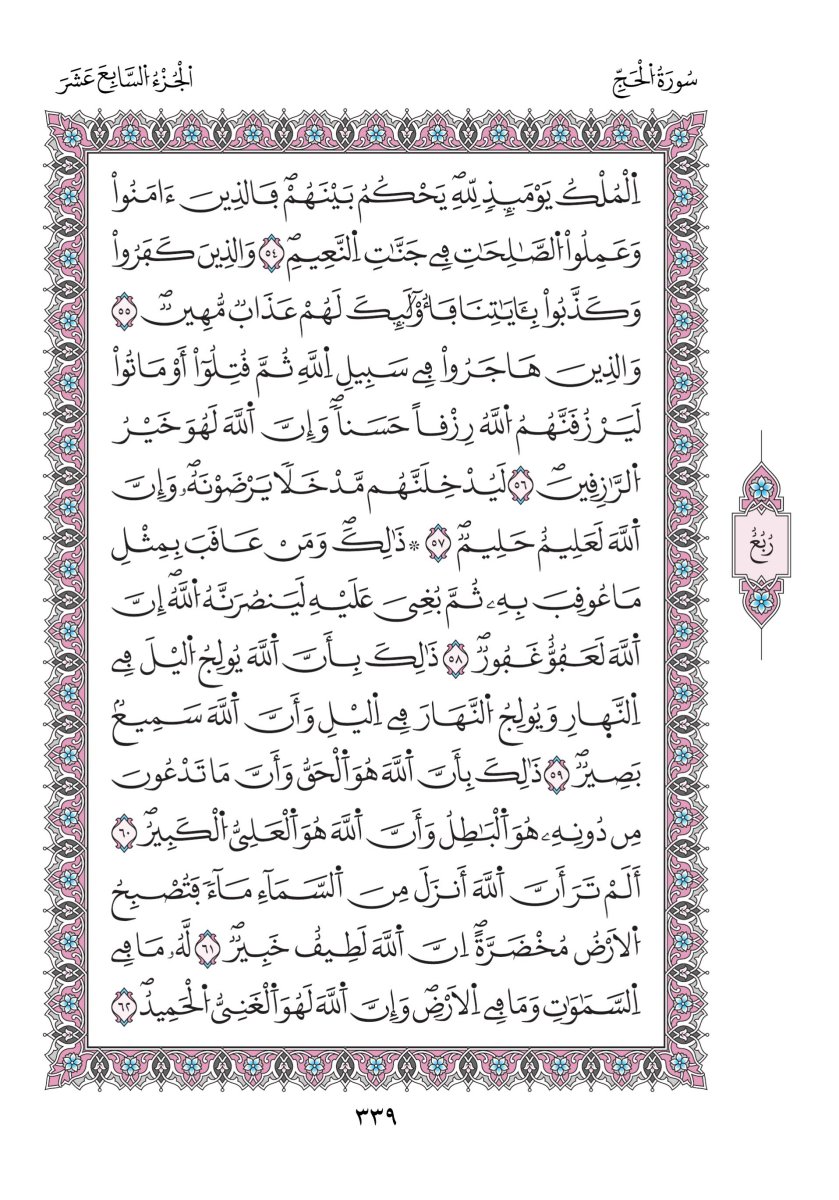 سُورَةُ اُ۬لْحَجِّ
اَ۬لْجُزْءُ اُ۬لسَّابِعَ عَشَرَ
اِ۬لْمُلْكُ يَوْمَئِذٖ لِّلهِۖ يَحْكُمُ بَيْنَهُمْۖ فَالذِينَ ءَامَنُواْ
وَعَمِلُواْ اُ۬لصَّٰلِحَٰتِ فِے جَنَّٰتِ اِ۬لنَّعِيمِۖ ٥٤ وَالذِينَ كَفَرُواْ
وَكَذَّبُواْ بِـَٔايَٰتِنَا فَأُوْلَٰٓئِكَ لَهُمْ عَذَابٞ مُّهِينٞۖ ٥٥
وَالذِينَ هَاجَرُواْ فِے سَبِيلِ اِ۬للَّهِ ثُمَّ قُتِلُوٓاْ أَوْ مَاتُواْ
لَيَرْزُقَنَّهُمُ اُ۬للَّهُ رِزْقاً حَسَناٗۖ وَإِنَّ اَ۬للَّهَ لَهُوَ خَيْرُ
اُ۬لرَّٰزِقِينَۖ ٥٦ لَيُدْخِلَنَّهُم مَّدْخَلاٗ يَرْضَوْنَهُۥۖ وَإِنَّ
اَ۬للَّهَ لَعَلِيمٌ حَلِيمٞۖ ٥٧ ۞ ذَٰلِكَۖ وَمَنْ عَاقَبَ بِمِثْلِ
مَا عُوقِبَ بِهِۦ ثُمَّ بُغِيَ عَلَيْهِ لَيَنصُرَنَّهُ اُ۬للَّهُۖ إِنَّ
اَ۬للَّهَ لَعَفُوٌّ غَفُورٞۖ ٥٨ ذَٰلِكَ بِأَنَّ اَ۬للَّهَ يُولِجُ اُ۬ليْلَ فِے
اِ۬لنَّه۪ارِ وَيُولِجُ اُ۬لنَّهَارَ فِے اِ۬ليْلِ وَأَنَّ اَ۬للَّهَ سَمِيعُۢ
بَصِيرٞۖ ٥٩ ذَٰلِكَ بِأَنَّ اَ۬للَّهَ هُوَ اَ۬لْحَقُّ وَأَنَّ مَا تَدْعُونَ
مِن دُونِهِۦ هُوَ اَ۬لْبَٰطِلُ وَأَنَّ اَ۬للَّهَ هُوَ اَ۬لْعَلِيُّ اُ۬لْكَبِيرُۖ ٦٠
أَلَمْ تَرَ أَنَّ اَ۬للَّهَ أَنزَلَ مِنَ اَ۬لسَّمَآءِ مَآءٗ فَتُصْبِحُ
اُ۬لَارْضُ مُخْضَرَّةًۖ اِنَّ اَ۬للَّهَ لَطِيفٌ خَبِيرٞۖ ٦١ لَّهُۥ مَا فِے
اِ۬لسَّمَٰوَٰتِ وَمَا فِے اِ۬لَارْضِۖ وَإِنَّ اَ۬للَّهَ لَهُوَ اَ۬لْغَنِيُّ اُ۬لْحَمِيدُۖ ٦٢
رُبُعُ
٣٣٩